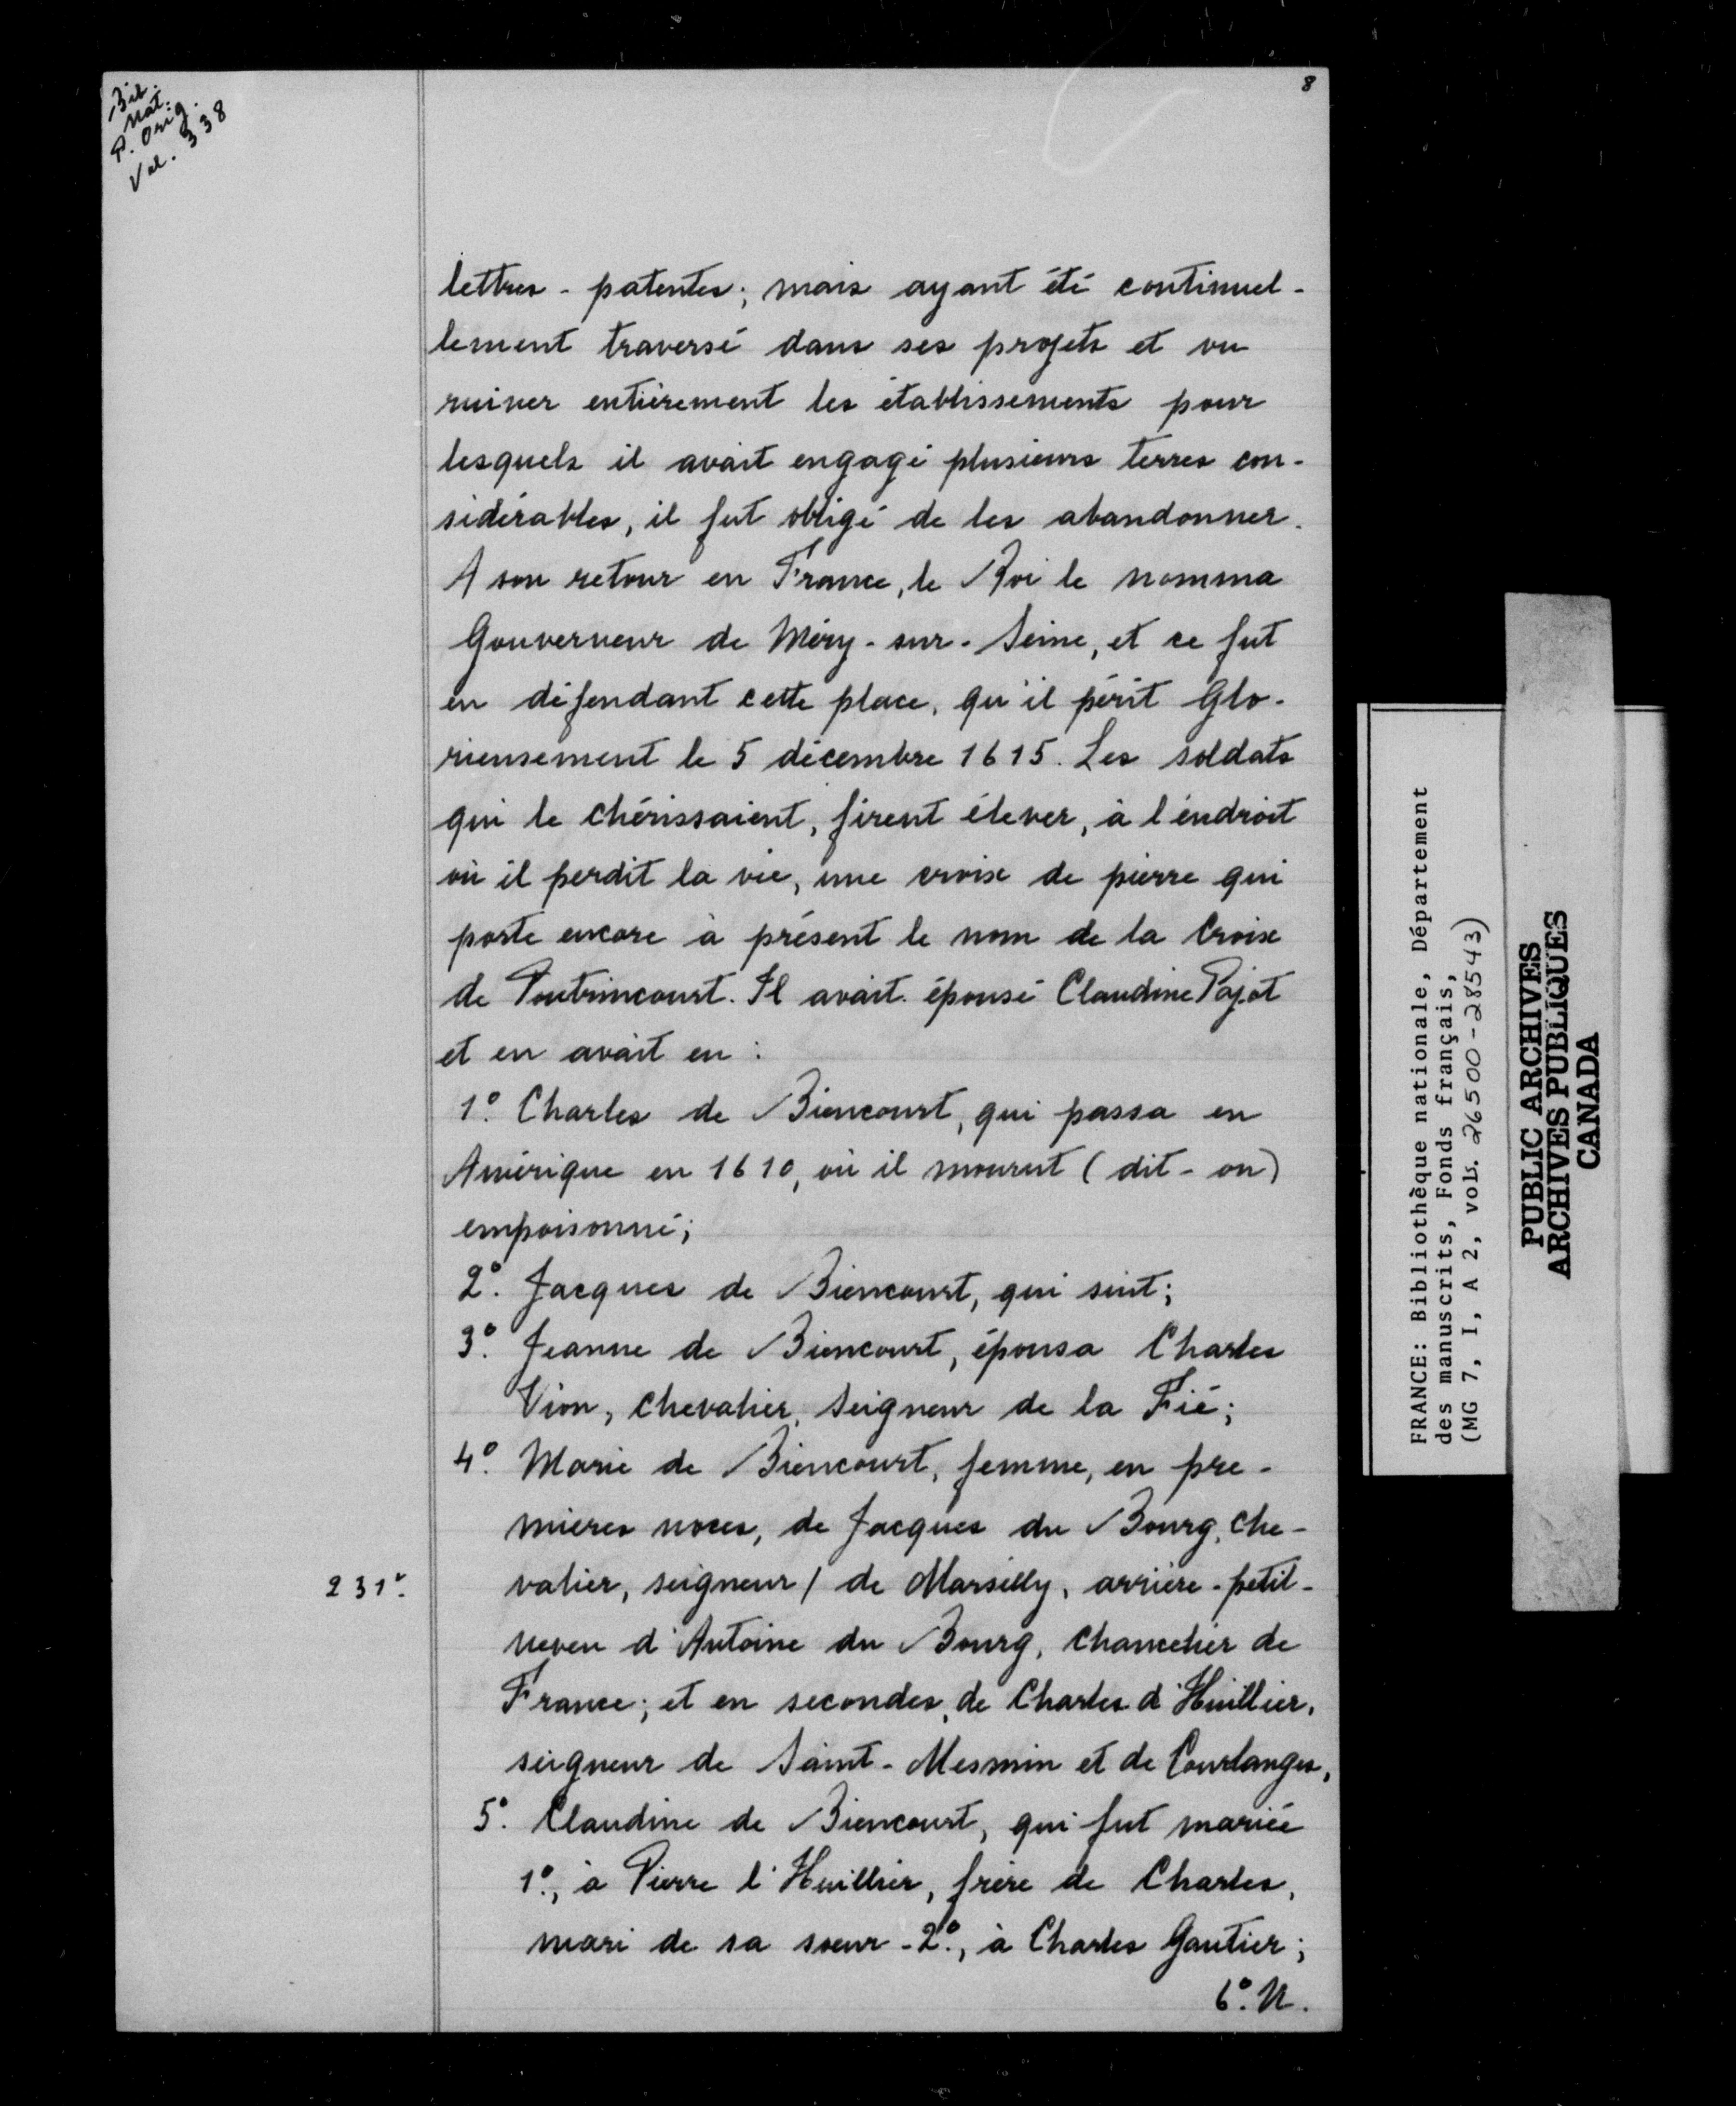 8
Bib.
Nat.
P. Orig.
Vol. 338
lettres - patentes; mais ayant été continuel-
lement traversé dans ses projets et vu
ruiner entièrement les établissements pour
lesquels il avait engagé plusieurs terres con-
sidérables, il fut obligé de les abandonner.
A son retour en France, le Roi le nomma
Gouverneur de Méry-sur-Seine, et ce fut
en défendant cette place, qu'il périt Glo-
rieusement le 5 décembre 1615. Les soldats
qui le chérissaient, firent élever, à l'endroit
où il perdit la vie, une croix de pierre qui
porte encore à présent le nom de la Croix
de Poutrincourt. Il avait épousé Claudine Pajot
et en avait eu :
1º. Charles de Biencourt, qui passa en
Amérique en 1610, où il mourut (dit-on)
empoisonné;
2º. Jacques de Biencourt, qui suit;
3º. Jeanne de Biencourt, épousa Charles
Vion, Chevalier, Seigneur de la Fié;
4º. Marie de Biencourt, femme, en pre-
mieres noces, de Jacques du Bourg, che-
231º. valier, seigneur / de Marsilly, arrière-petit-
neveu d'Antoine du Bourg, Chancelier de
France; et en secondes, de Charles d'Huillier,
seigneur de Saint-Mesmin et de Courlanges,
5º. Claudine de Biencourt, qui fut mariée
1º., à Pierre l'Huillier, frère de Charles,
mari de sa sœur - 2º., à Charles Gautier;
6º. N.
FRANCE: Bibliothèque nationale, Département
des manuscrits, Fonds français,
(MG 7, I, A 2, vols. 26500-28543)
PUBLIC ARCHIVES
ARCHIVES PUBLIQUES
CANADA